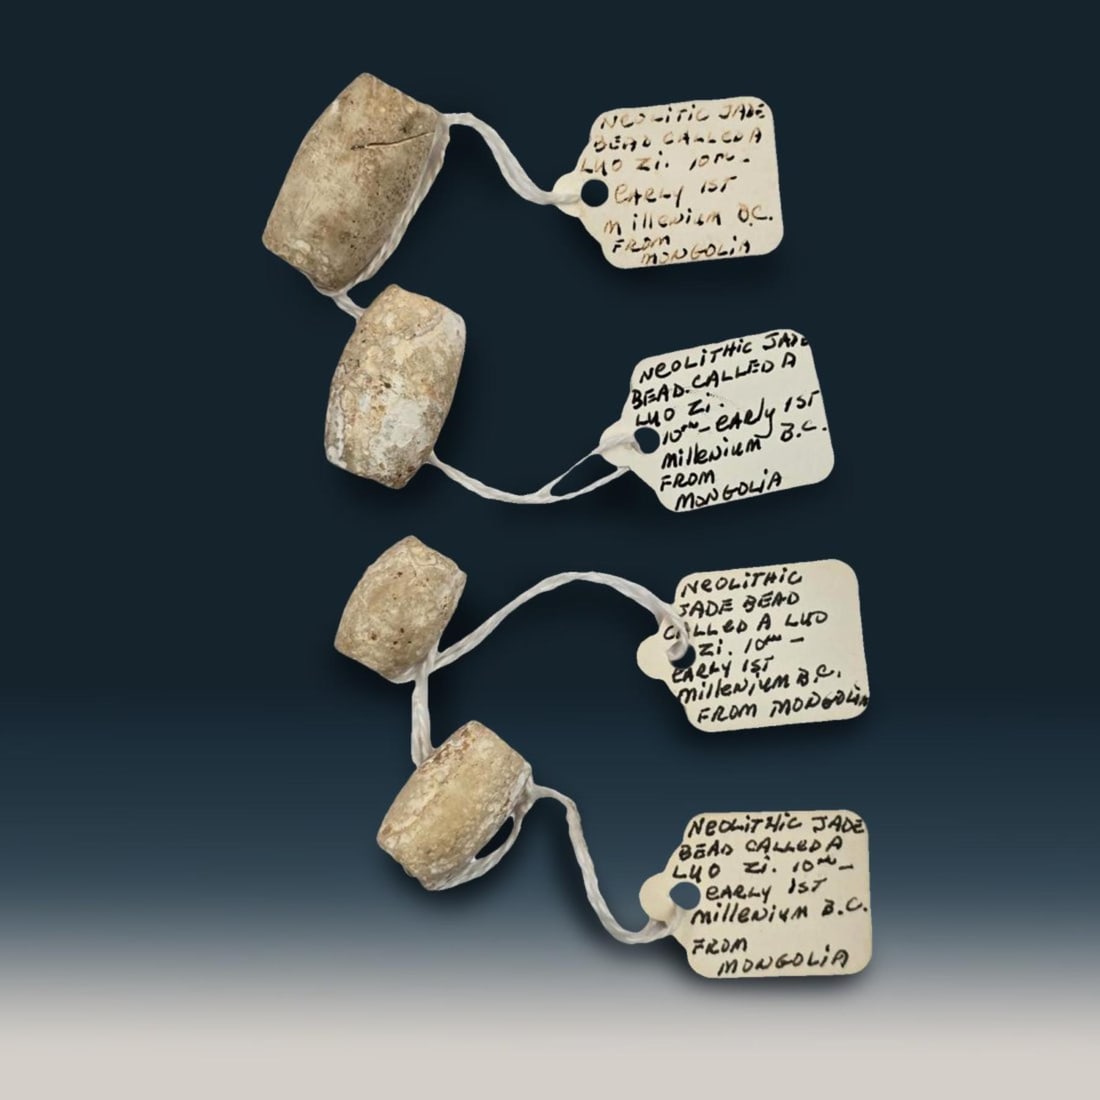 NEOLITIC JADE
BEAD CALLED A
LUO Zi. 10TH -
EARLY 1ST
MillENiUM B.C.
FROM
MONGOLiA
NEOLiTHiC JADE
BEAD. CALLED A
LUO Zi.
10TH - EARLY 1ST
MillENiUM B.C.
FROM
MONGOLiA
NEOLiTHiC
JADE BEAD
CALLED A LUO
Zi. 10TH -
EARLY 1ST
MillENiUM B.C.
FROM MONGOLiA
NEOLiTHiC JADE
BEAD CALLED A
LUO Zi. 10TH -
EARLY 1ST
MillENiUM B.C.
FROM
MONGOLiA